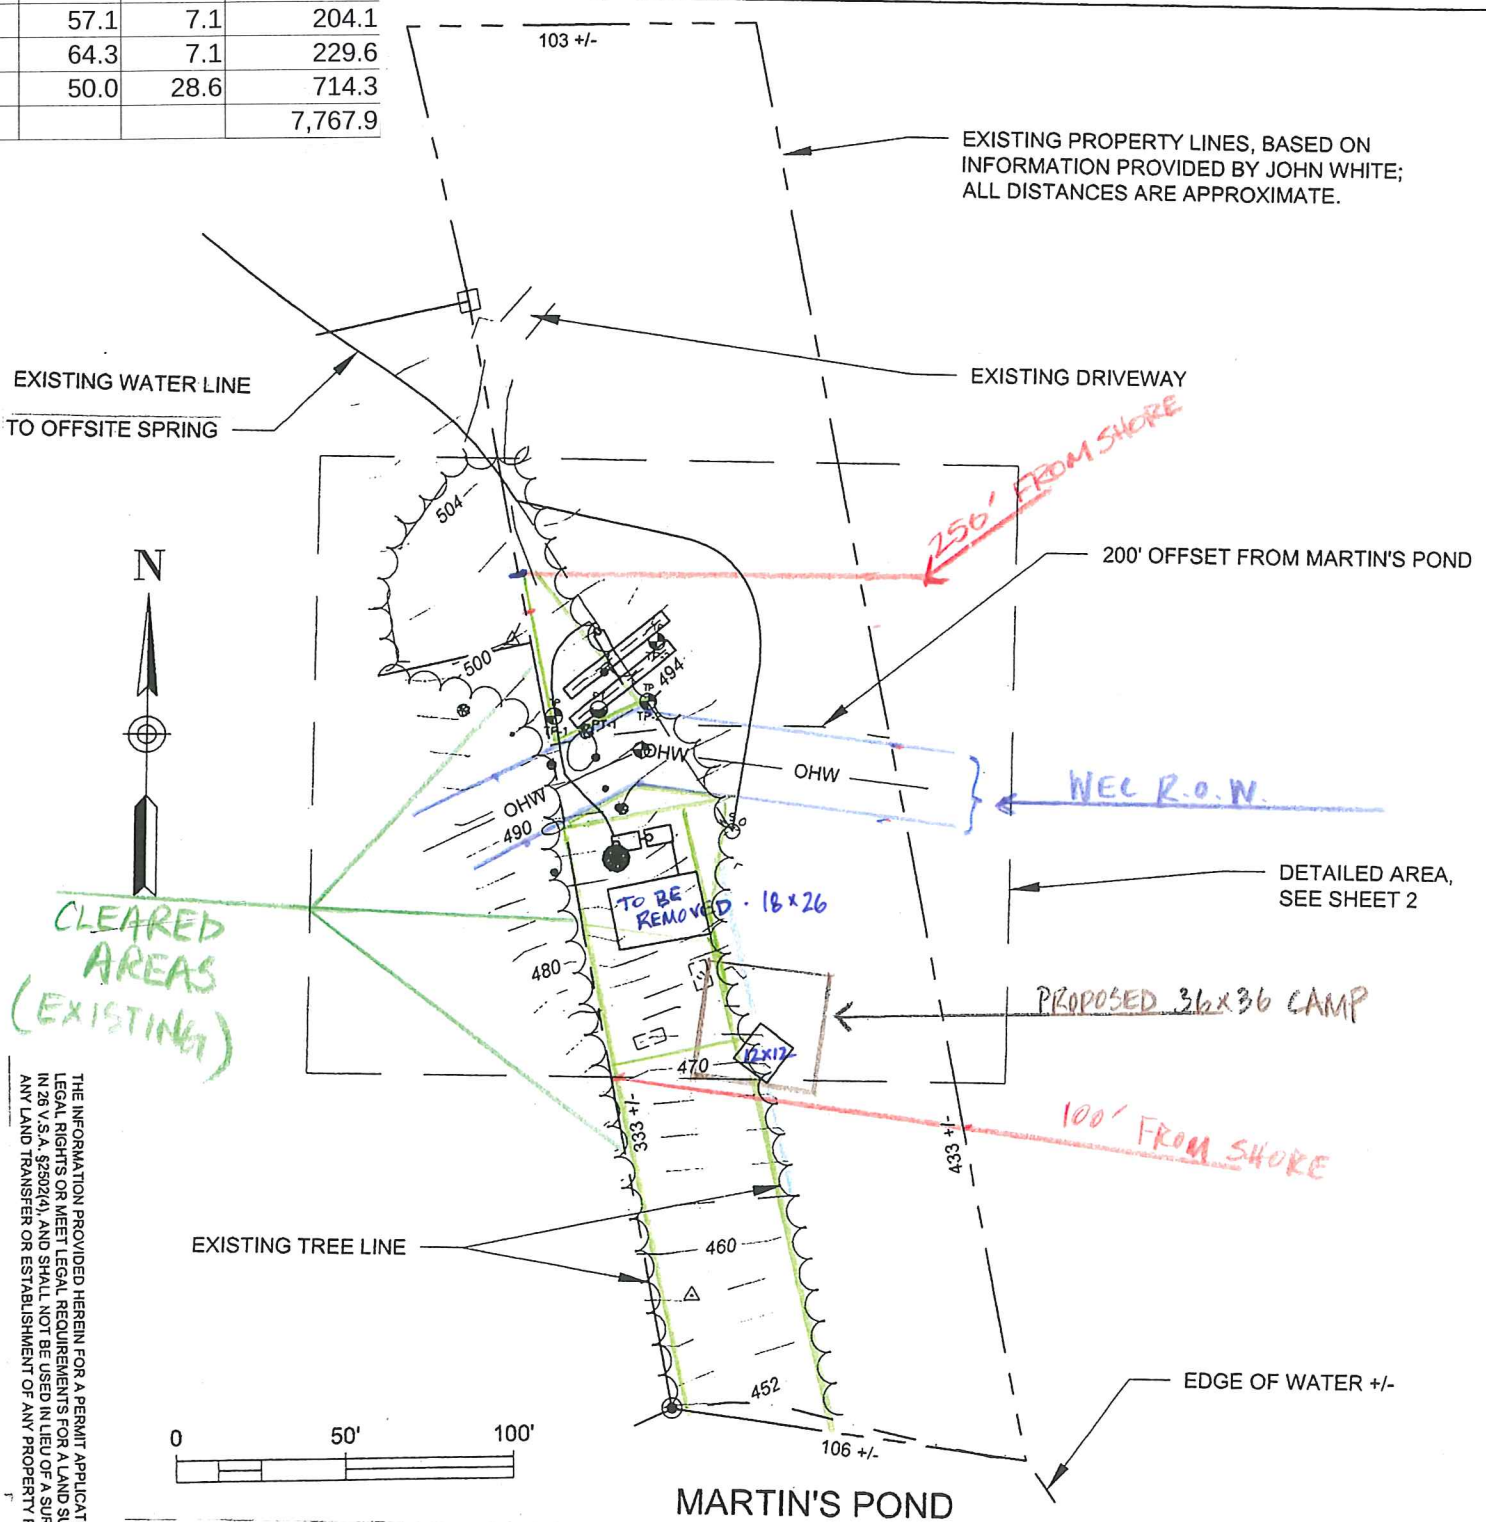 57.1 7.1 204.1
64.3 7.1 229.6
50.0 28.6 714.3
7,767.9
103 +/-
EXISTING PROPERTY LINES, BASED ON
INFORMATION PROVIDED BY JOHN WHITE;
ALL DISTANCES ARE APPROXIMATE.
EXISTING WATER LINE
TO OFFSITE SPRING
EXISTING DRIVEWAY
256' FROM SHORE
504
N
200' OFFSET FROM MARTIN'S POND
500
494
TP-1
OHW
OHW
OHW
WEC R.O.W.
490
DETAILED AREA,
SEE SHEET 2
CLEARED
AREAS
(EXISTING)
TO BE
REMOVED · 18x26
480
PROPOSED 36x36 CAMP
12x12
470
100' FROM SHORE
333 +/-
433 +/-
EXISTING TREE LINE
460
452
EDGE OF WATER +/-
106 +/-
0 50' 100'
MARTIN'S POND
THE INFORMATION PROVIDED HEREIN FOR A PERMIT APPLICAT
LEGAL RIGHTS OR MEET LEGAL REQUIREMENTS FOR A LAND SU
IN 26 V.S.A. §2502(4), AND SHALL NOT BE USED IN LIEU OF A SUR
ANY LAND TRANSFER OR ESTABLISHMENT OF ANY PROPERTY